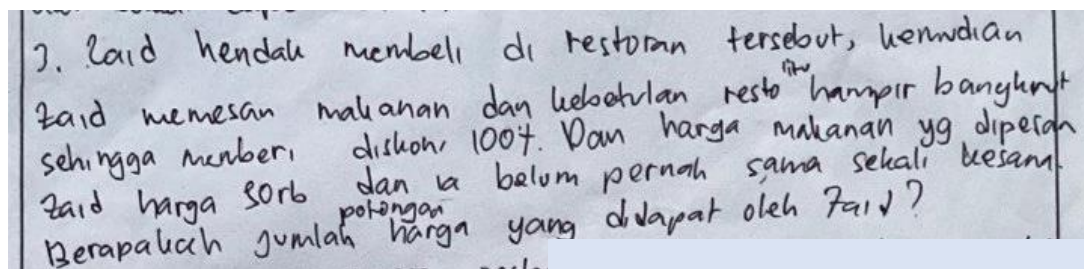 3. Zaid hendak membeli di restoran tersebut, kemudian
Zaid memesan makanan dan kebetulan resto itu hampir bangkrut
sehingga memberi diskon 100%. Dan harga makanan yg dipesan
Zaid harga 50rb dan ia belum pernah sama sekali kesana.
Berapakah jumlah potongan harga yang didapat oleh Zaid?